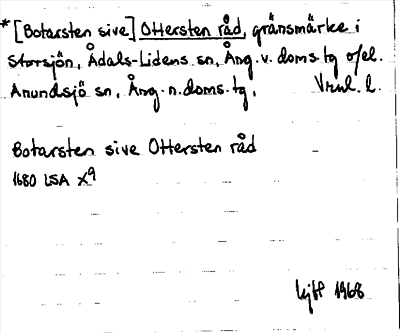 * [Botarsten sive] Ottersten råd, gränsmärke i
Storsjön, Ådals-Lidens sn, Ång. v. doms. tg o/el.
Anundsjö sn, Ång. n. doms. tg,
Botarsten sive Ottersten råd
1680 LSA X9
1968